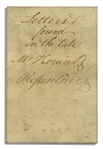 Letters &
found
in the late
Mr Howard's
Repositories